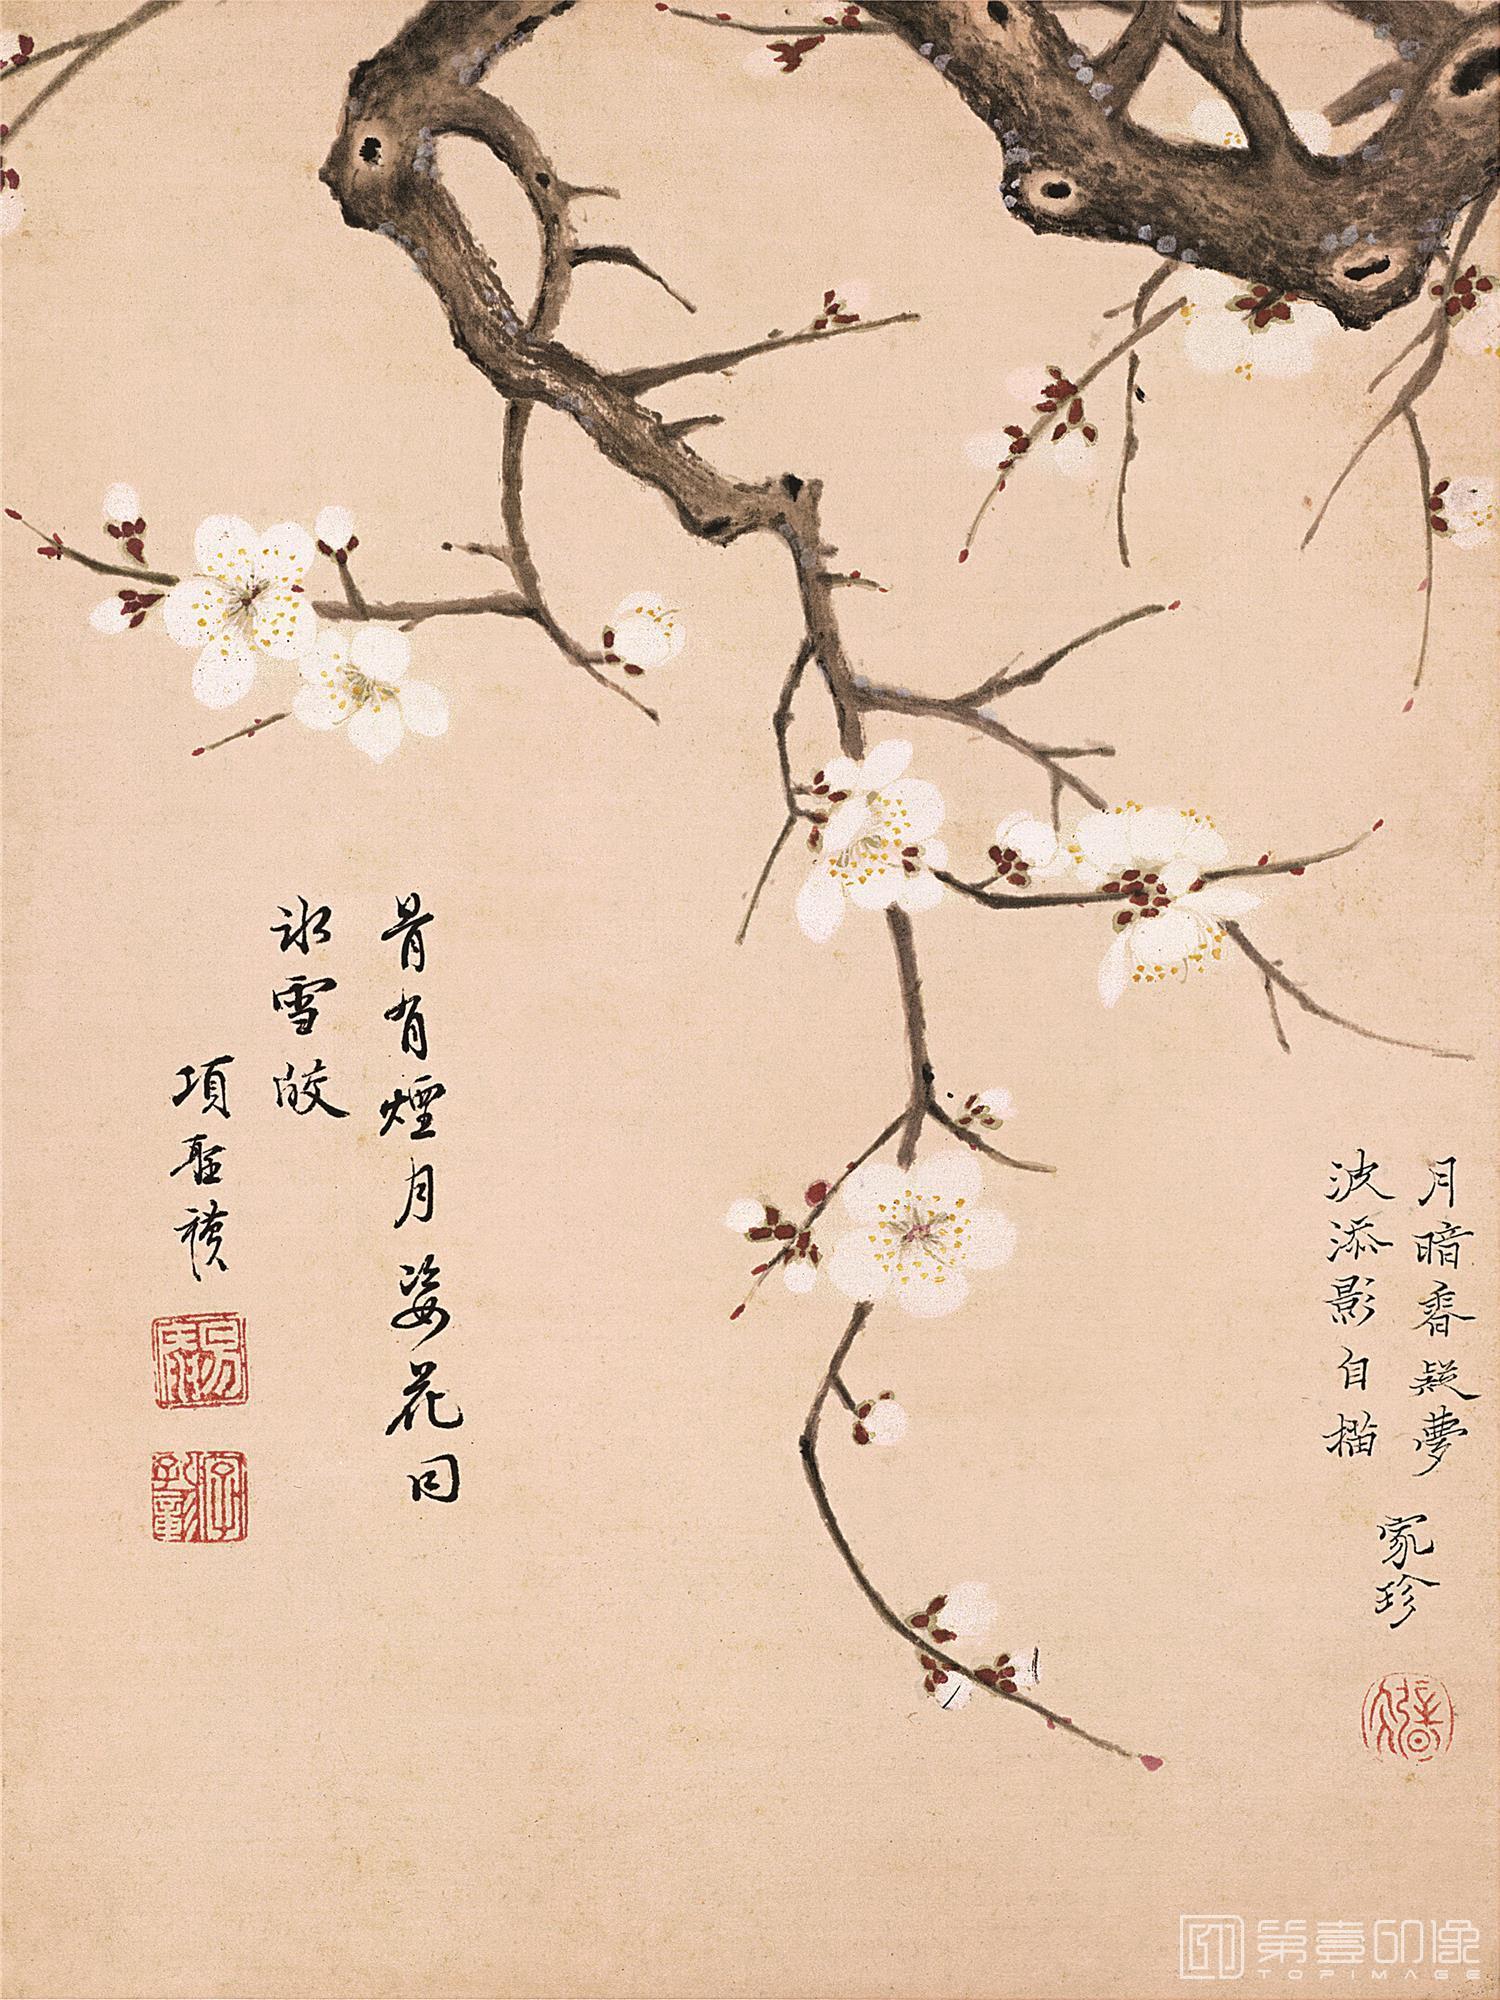 月暗香疑夢
波添影自描
家珍
骨有煙月姿花同
冰雪皎
項聖謨
第壹印像
TOPIMAGE